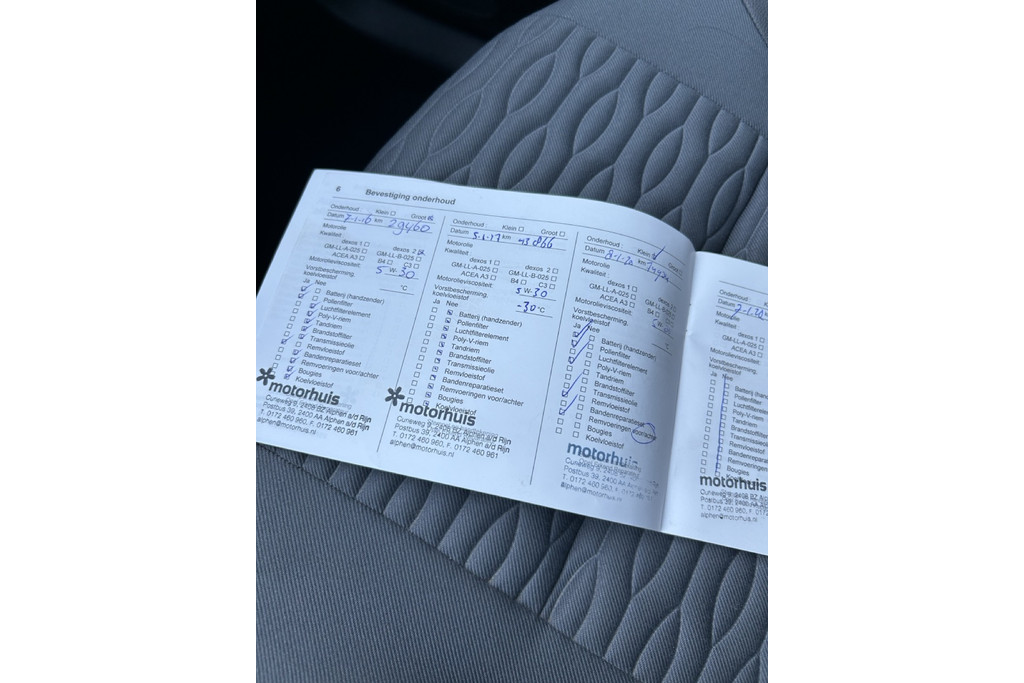 6 Bevestiging onderhoud
Onderhoud : Klein Groot
Datum 7-1-16 km 29460
Motorolie
Kwaliteit :
dexos 1 dexos 2
GM-LL-A-025 GM-LL-B-025
ACEA A3 B4 C3
Motorolieviscositeit: 5 W-30
Vorstbescherming,
koelvloeistof °C
Ja Nee
Batterij (handzender)
Pollenfilter
Luchtfilterelement
Poly-V-riem
Tandriem
Brandstoffilter
Transmissieolie
Remvloeistof
Bandenreparatieset
Remvoeringen voor/achter
Bougies
Koelvloeistof
motorhuis
Cuneweg 9, 2408 BZ Alphen a/d Rijn
Postbus 39, 2400 AA Alphen a/d Rijn
T. 0172 460 960, F. 0172 460 961
alphen@motorhuis.nl
Onderhoud : Klein Groot
Datum 5-1-17 km 43866
Motorolie
Kwaliteit :
dexos 1 dexos 2
GM-LL-A-025 GM-LL-B-025
ACEA A3 B4 C3
Motorolieviscositeit: 5 W-30
Vorstbescherming,
koelvloeistof -30 °C
Ja Nee
Batterij (handzender)
Pollenfilter
Luchtfilterelement
Poly-V-riem
Tandriem
Brandstoffilter
Transmissieolie
Remvloeistof
Bandenreparatieset
Remvoeringen voor/achter
Bougies
Koelvloeistof
motorhuis
Cuneweg 9, 2408 BZ Alphen a/d Rijn
Postbus 39, 2400 AA Alphen a/d Rijn
T. 0172 460 960, F. 0172 460 961
alphen@motorhuis.nl
Onderhoud : Klein Groot
Datum km
Motorolie
Kwaliteit :
dexos 1
GM-LL-A-025 GM-LL-B
ACEA A3 B4
Motorolieviscositeit:
Vorstbescherming,
koelvloeistof
Ja Nee
Batterij (handzender)
Pollenfilter
Luchtfilterelement
Poly-V-riem
Tandriem
Brandstoffilter
Transmissieolie
Remvloeistof
Bandenreparatieset
Remvoeringen voor/achter
Bougies
Koelvloeistof
motorhuis
Cuneweg 9, 2408
Postbus 39, 2400 AA
T. 0172 460 960, F. 0172 460
alphen@motorhuis.nl
Onderhoud :
Datum
Motorolie
Kwaliteit :
dexos 1
GM-LL-A-025
ACEA A3
Motorolieviscositeit:
Vorstbescherming,
koelvloeistof
Ja Nee
Batterij (hand
Pollenfilter
Luchtfilterele
Poly-V-riem
Tandriem
Brandstoffilter
Transmissieo
Remvloeistof
Bandenrepara
Remvoeringen
Bougies
Koelvloeistof
motorhuis
Cuneweg 9, 2408 BZ Alph
Postbus 39, 2400
T. 0172 460 960, F. 0172
alphen@motorhuis.nl